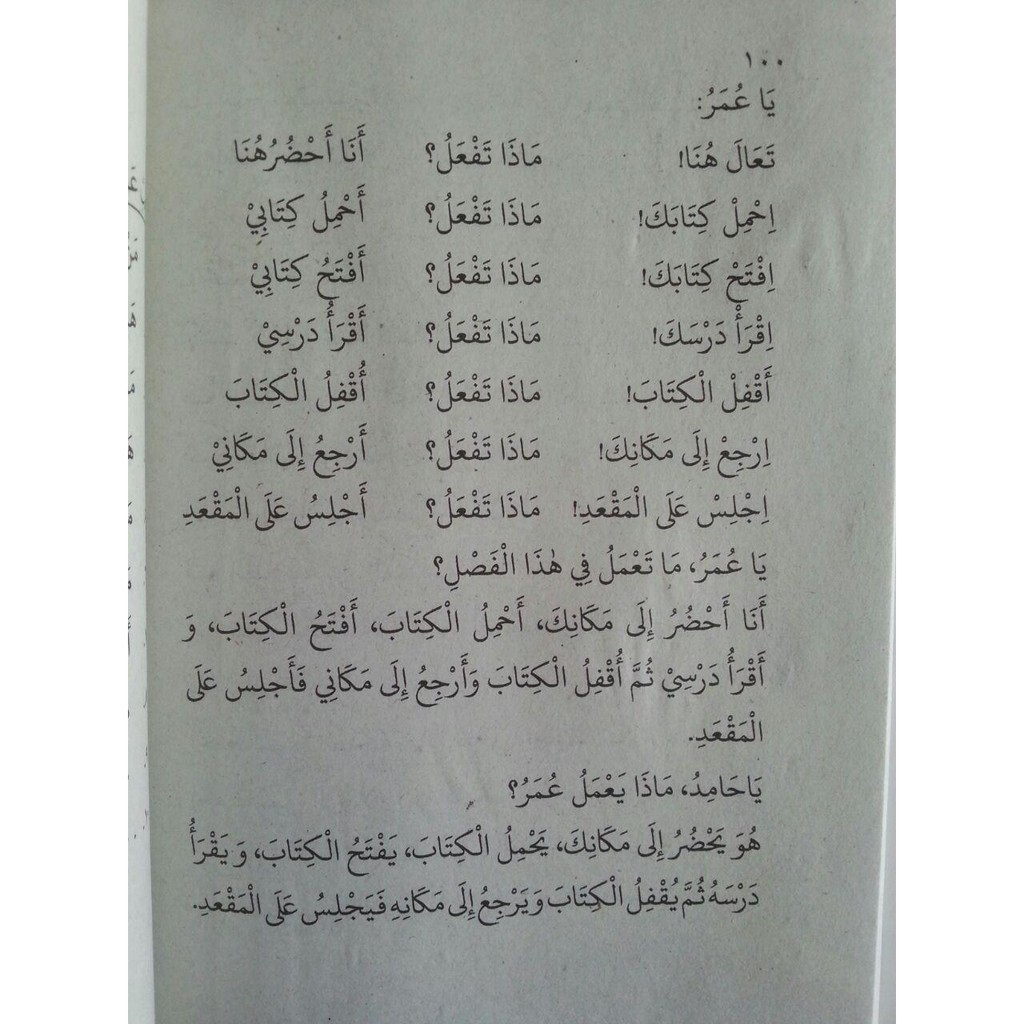 ١٠٠
يَا عُمَرُ:
تَعَالَ هُنَا! مَاذَا تَفْعَلُ؟ أَنَا أَحْضُرُهُنَا
اِحْمِلْ كِتَابَكَ! مَاذَا تَفْعَلُ؟ أَحْمِلُ كِتَابِيْ
اِفْتَحْ كِتَابَكَ! مَاذَا تَفْعَلُ؟ أَفْتَحُ كِتَابِيْ
اِقْرَأْ دَرْسَكَ! مَاذَا تَفْعَلُ؟ أَقْرَأُ دَرْسِيْ
أَقْفِلْ الْكِتَابَ! مَاذَا تَفْعَلُ؟ أُقْفِلُ الْكِتَابَ
اِرْجِعْ إِلَى مَكَانِكَ! مَاذَا تَفْعَلُ؟ أَرْجِعُ إِلَى مَكَانِيْ
اِجْلِسْ عَلَى الْمَقْعَدِ! مَاذَا تَفْعَلُ؟ أَجْلِسُ عَلَى الْمَقْعَدِ
يَا عُمَرُ، مَا تَعْمَلُ فِي هٰذَا الْفَصْلِ؟
أَنَا أَحْضُرُ إِلَى مَكَانِكَ، أَحْمِلُ الْكِتَابَ، أَفْتَحُ الْكِتَابَ، وَ
أَقْرَأُ دَرْسِيْ ثُمَّ أُقْفِلُ الْكِتَابَ وَأَرْجِعُ إِلَى مَكَانِي فَأَجْلِسُ عَلَى
الْمَقْعَدِ.
يَاحَامِدُ، مَاذَا يَعْمَلُ عُمَرُ؟
هُوَ يَحْضُرُ إِلَى مَكَانِكَ، يَحْمِلُ الْكِتَابَ، يَفْتَحُ الْكِتَابَ، وَيَقْرَأُ
دَرْسَهُ ثُمَّ يُقْفِلُ الْكِتَابَ وَيَرْجِعُ إِلَى مَكَانِهِ فَيَجْلِسُ عَلَى الْمَقْعَدِ.